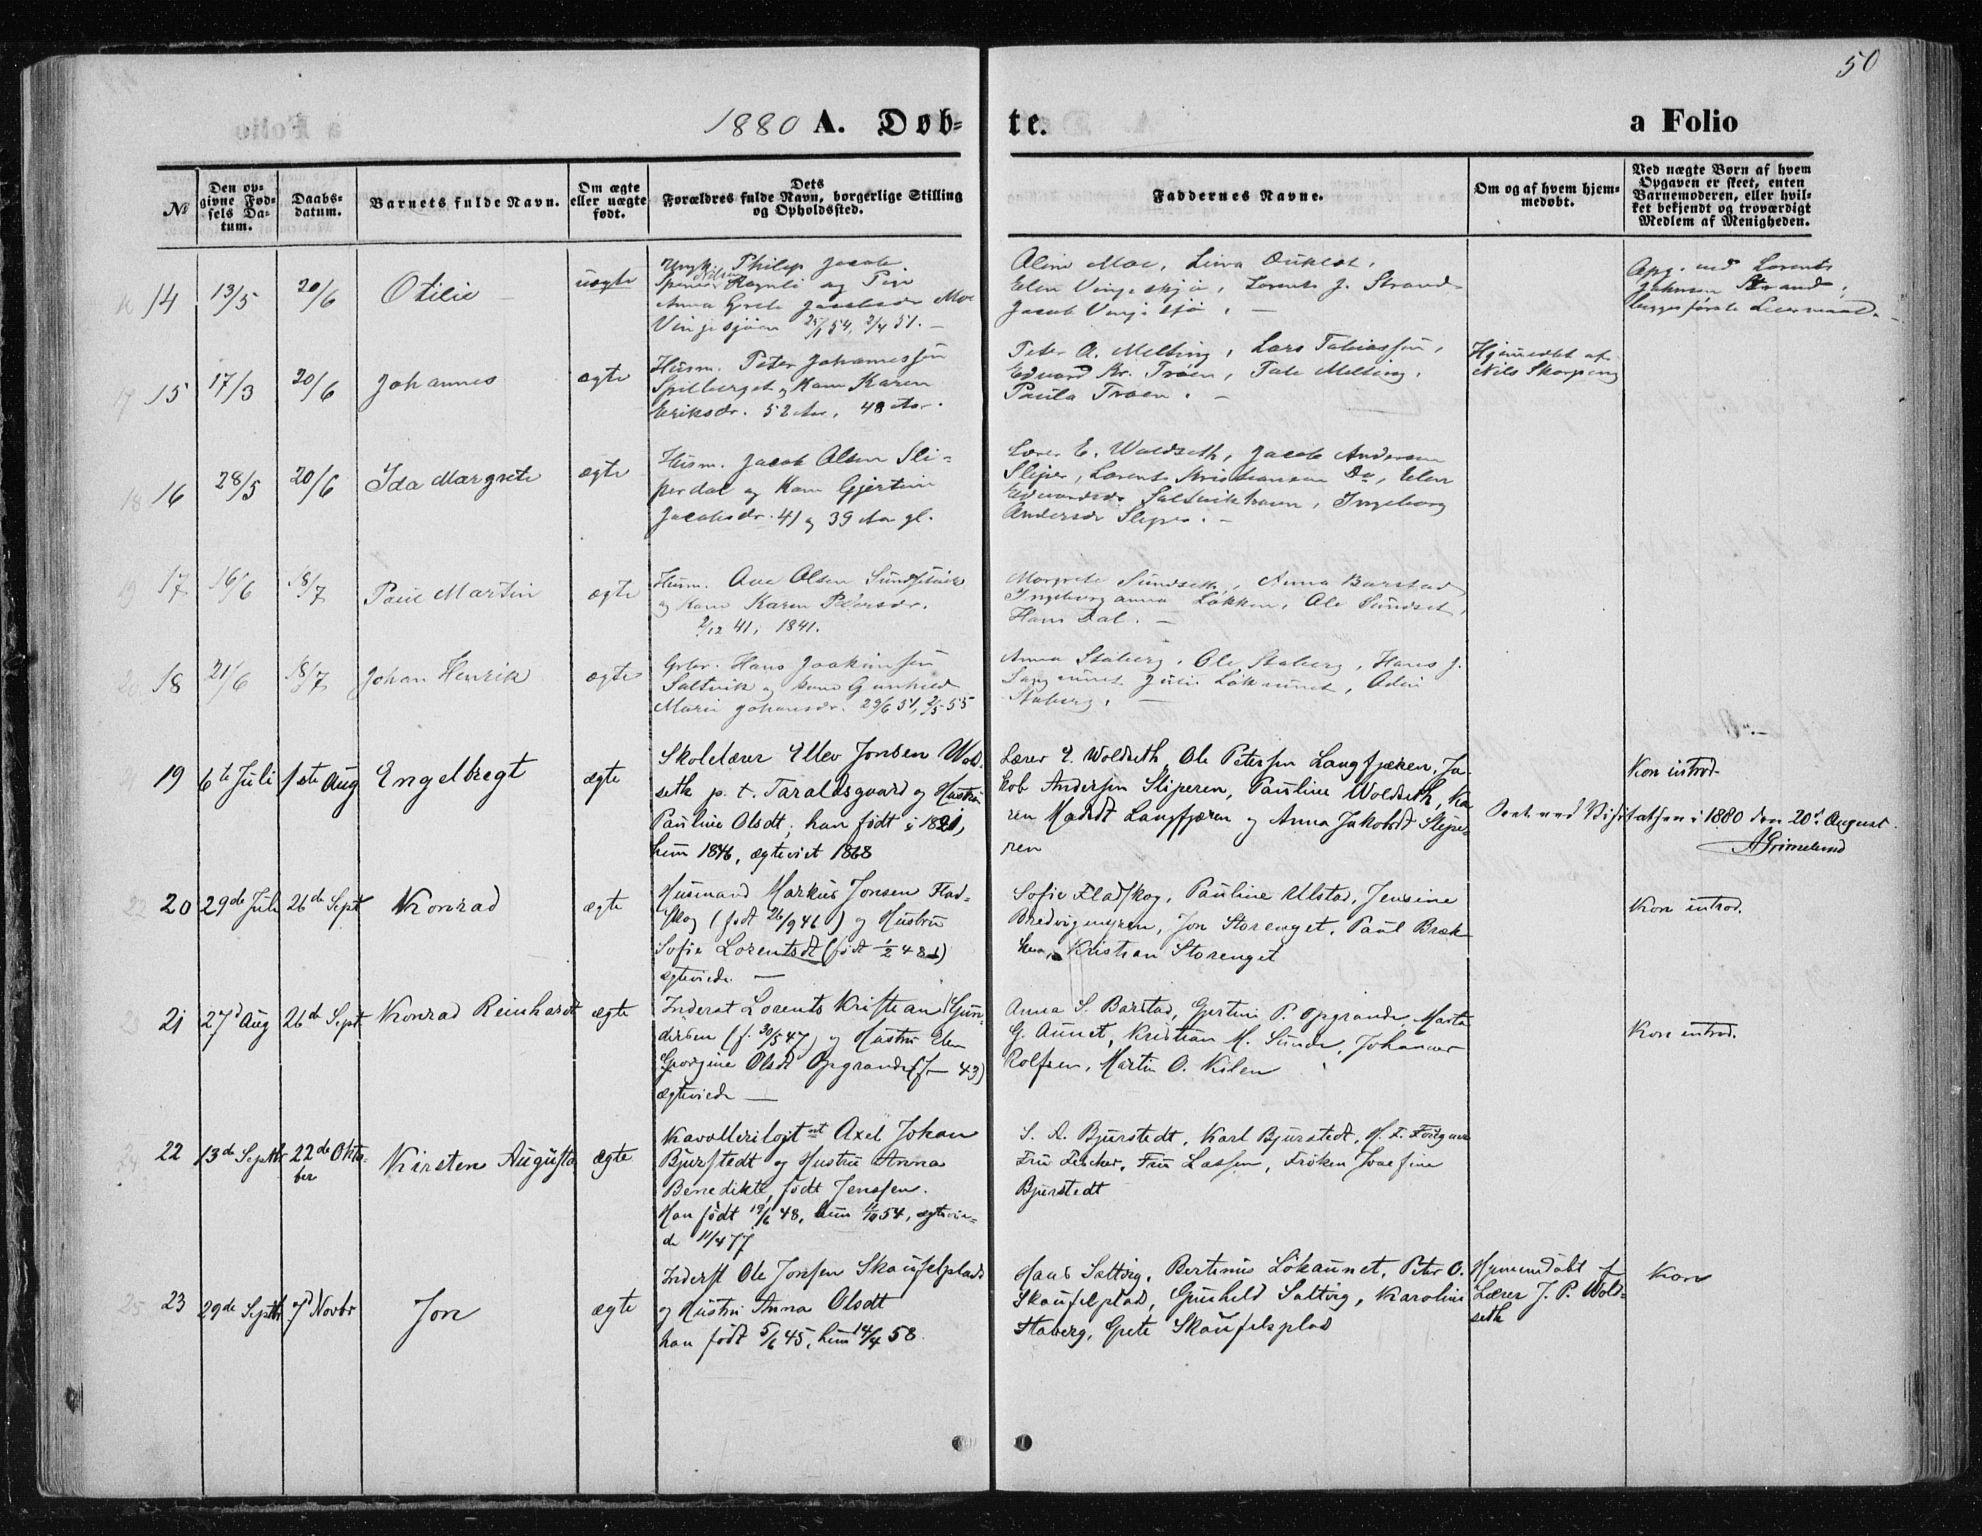 50
1880 A. Døb-
te.
a Folio
№
Den op-
givne Fød-
sels Da-
tum.
Daabs-
datum.
Barnets fulde Navn.
Om ægte
eller uægte
født.
Dets
Forældres fulde Navn, borgerlige Stilling
og Opholdssted.
Faddernes Navne.
Om og af hvem hjem-
medøbt.
Ved uægte Børn af hvem
Opgaven er skeet, enten
Barnemoderen, eller hvil-
ket bekjendt og troværdigt
Medlem af Menigheden.
14
13/5
20/6
Otilie
uægte
Ungk. Philip Jacob
og Pige
Anna Grete Moe
Vingesjøen 2/4 51.
Aline Moe, Lina
Elen Vingesjø, Lorents J. Strand
Jacob Vingesjø.
Opg. ved Lorents
Johnsen Strand,
begges første Leiermaal.
15
17/3
20/6
Johannes
ægte
Husm. Peter Johannessen
Spilberget og Kone Karen
Eriksdr. 52 Aar, 48 Aar.
Peter A. Melting, Lars Tobiassen,
Edvard Br. Troen, Melting,
Paula Troen.
Hjemdøbt af
Nils Skarping
16
28/5
20/6
Ida Margrete
ægte
Husm. Jacob Olsen Sli-
perdal og Kone Gjertine
Jacobsdr. 41 og 39 Aar gl.
Lærer E. Woldseth, Jacob Andersen
Sliper, Lorents Kristiansen Do, Elen
Edvardsdr Saltvikhaven, Ingeborg
Andersdr Sliper.
17
16/6
18/7
Paul Martin
ægte
Husm. Olsen
og Kone Karen Pedersdr.
2/12 41, 1841.
Margrete Sundseth, Anna Barstad
Ingeborganna Løkken, Ole Sundset,
Hans Dal.
18
21/6
18/7
Johan Henrik
ægte
Gbr. Hans Joakimsen
Saltvik og Kone Gunhild
Marie Johansdr. 29/6 51, 2/5 55
Anna Staberg, Ole Staberg, Hans J.
Julie Løkaunet,
Staberg.
19
6te Juli
1ste Aug
Engelbregt
ægte
Skolelærer Ellev Jonsen Wold-
seth p. t. Taraldsgaard og Hustru
Pauline Olsdt; han født i
hun 1846, ægteviet 1868
Lærer E. Woldseth, Ole Petersen Langfjæren, Ja-
kob Andersen Sliperen, Pauline Woldseth, Ka-
ren Madsdt Langfjæren og Anna Jakobsdt Slipe-
ren
Kon introd.
Seet ved Visitatsen i 1880 den 20de August.
AGrimelund
20
29de Juli
26de Sept
Konrad
ægte
Husmand Markus Jonsen Flad-
skog (født 26/9 46) og Hustru
Sofie Lorentsdt (født 1/2 48)
ægteviede —
Sofie Fladskog, Pauline Ulstad, Jensine
Bredvigmyren, Jon Storenget, Paul Bræk-
ken, Kristian Storenget
Kon introd.
21
27de Aug
26de Sept.
Konrad Reinhardt
ægte
Inderst Lorents Kristian Gun-
dersen (f. 30/5 47) og Hustru Elen
Georgine Olsdt Opgrande (f — 43)
ægteviede —
Anna S. Barstad, Gjertine P. Opgrande, Marta
G. Aunet, Kristian M. Sunde, Johannes
Rolfsen, Martin O. Kilen
Kon introd.
22
13de Septbr
22de Okto-
ber
Kirsten Augusta
ægte
Kavalleriløjtnt Axel Johan
Bjurstedt og Hustru Anna
Benedikte, født Jenssen.
Han født 19/6 48, hun 54, ægtevie-
de 11/4 77
S. A. Bjurstedt, Karl Bjurstedt, H. F.
Fru Fischer, Fru Lassen, Frøken Josefine
Bjurstedt
23
29de Septbr
7de Novbr
Jon
ægte
Inderst Ole Jonsen Skaufelplads
og Hustru Anna Olsdt
han født 5/6 45, hun 14/4 58.
Hans Saltvig, Bertinus Løkaunet, Peter O.
Skaufelplad, Gunhild Saltvig, Karoline
Staberg, Grete Skaufelsplad
Hjemmedøbt af
Lærer J. P. Wold-
seth
Kon